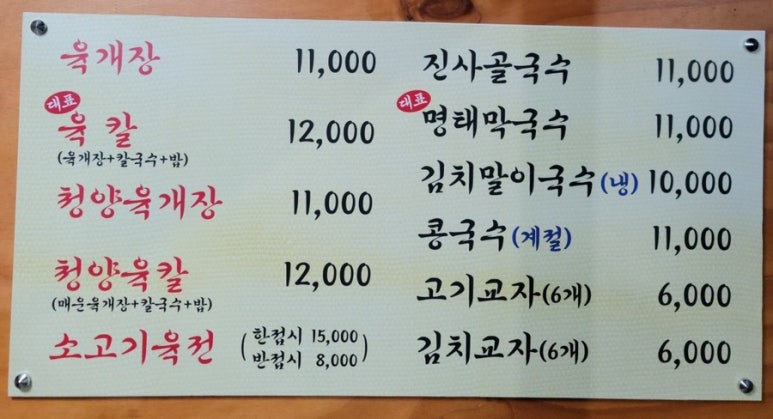 육개장 11,000
대표
육칼 12,000
(육개장+칼국수+밥)
청양육개장 11,000
청양육칼 12,000
(매운육개장+칼국수+밥)
소고기육전 (한접시 15,000
반접시 8,000)
진사골국수 11,000
대표
명태막국수 11,000
김치말이국수(냉) 10,000
콩국수(계절) 11,000
고기교자(6개) 6,000
김치교자(6개) 6,000